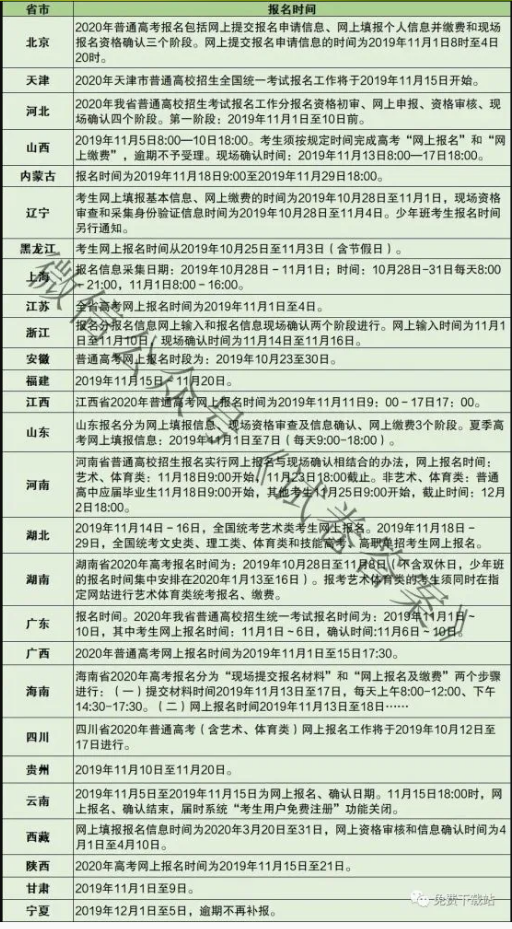 省市 报名时间
北京 2020年普通高考报名包括网上提交报名申请信息、网上填报个人信息并缴费和现场
报名资格确认三个阶段。网上提交报名申请信息的时间为2019年11月1日8时至4日
20时。
天津 2020年天津市普通高校招生全国统一考试报名工作将于2019年11月15日开始。
河北 2020年我省普通高校招生考试报名工作分报名资格初审、网上申报、资格审核、现
场确认四个阶段。第一阶段：2019年11月1日至10日前。
山西 2019年11月5日8:00—10日18:00。考生须按规定时间完成高考“网上报名”和“网
上缴费”，逾期不予受理。现场确认时间：2019年11月13日8:00—17日18:00。
内蒙古 报名时间为2019年11月18日9:00至2019年11月29日18:00。
辽宁 考生网上填报基本信息、网上缴费的时间为2019年10月28日至11月1日，现场资格
审查和采集身份验证信息时间为2019年10月28日至11月4日。少年班考生报名时间
另行通知。
黑龙江 考生网上报名时间从2019年10月25日至11月3日（含节假日）。
上海 报名信息采集日期：2019年10月28日－11月1日；时间：10月28日-31日每天8:00
－21:00，11月1日8:00－16:00。
江苏 全省高考网上报名时间为2019年11月1日至4日。
浙江 报名分报名信息网上输入和报名信息现场确认两个阶段进行。网上输入时间为11月1
日至11月10日，现场确认时间为11月14日至11月16日。
安徽 普通高考网上报名时段为：2019年10月23至30日。
福建 2019年11月15日－11月20日。
江西 江西省2020年普通高考网上报名时间为2019年11月11日9：00－17日17：00。
山东 山东报名分为网上填报信息、现场资格审查及信息确认、网上缴费3个阶段。夏季高
考网上填报信息：2019年11月1日至7日（每天9:00-18:00）。
河南 河南省普通高校招生报名实行网上报名与现场确认相结合的办法，网上报名时间：
艺术、体育类：11月18日9:00开始，11月23日18:00截止。非艺术、体育类：普通
高中应届毕业生11月18日9:00开始，其他考生11月25日9:00开始，截止时间：12月
2日18:00。
湖北 2019年11月14日－16日，全国统考艺术类考生网上报名。2019年11月18日－
29日，全国统考文史类、理工类、体育类和技能高考、高职单招考生网上报名。
湖南 湖南省2020年高考报名时间为：2019年10月28日至11月8日（不含双休日，少年班
的报名时间集中安排在2020年1月13至16日）。报考艺术体育类的考生须同时在指
定网站进行艺术体育类统考报名、缴费。
广东 报名时间。2020年我省普通高校招生统一考试报名时间为：2019年11月1日~
10日，其中考生网上报名时间：11月1日~6日，确认时间:11月6日~10日。
广西 2020年普通高考网上报名时间为2019年11月1日至15日17:30。
海南 海南省2020年高考报名分为“现场提交报名材料”和“网上报名及缴费”两个步骤
进行：（一）提交材料时间2019年11月13日至17日，每天上午8:00-12:00、下午
14:30-17:30。（二）网上报名时间2019年11月13日至18日……
四川 四川省2020年普通高考（含艺术、体育类）网上报名工作将于2019年10月12日至
17日进行。
贵州 2019年11月10日至11月20日。
云南 2019年11月5日至2019年11月15日为网上报名、确认日期。11月15日18:00时，网
上报名、确认结束，届时系统“考生用户免费注册”功能关闭。
西藏 网上填报报名信息时间为2020年3月20日至31日，网上资格审核和信息确认时间为4
月1日至4月10日。
陕西 2020年高考网上报名时间为2019年11月15日至21日。
甘肃 2019年11月1日至9日。
宁夏 2019年12月1日至5日，逾期不再补报。
微信公众号《试卷答案》
免费下载站